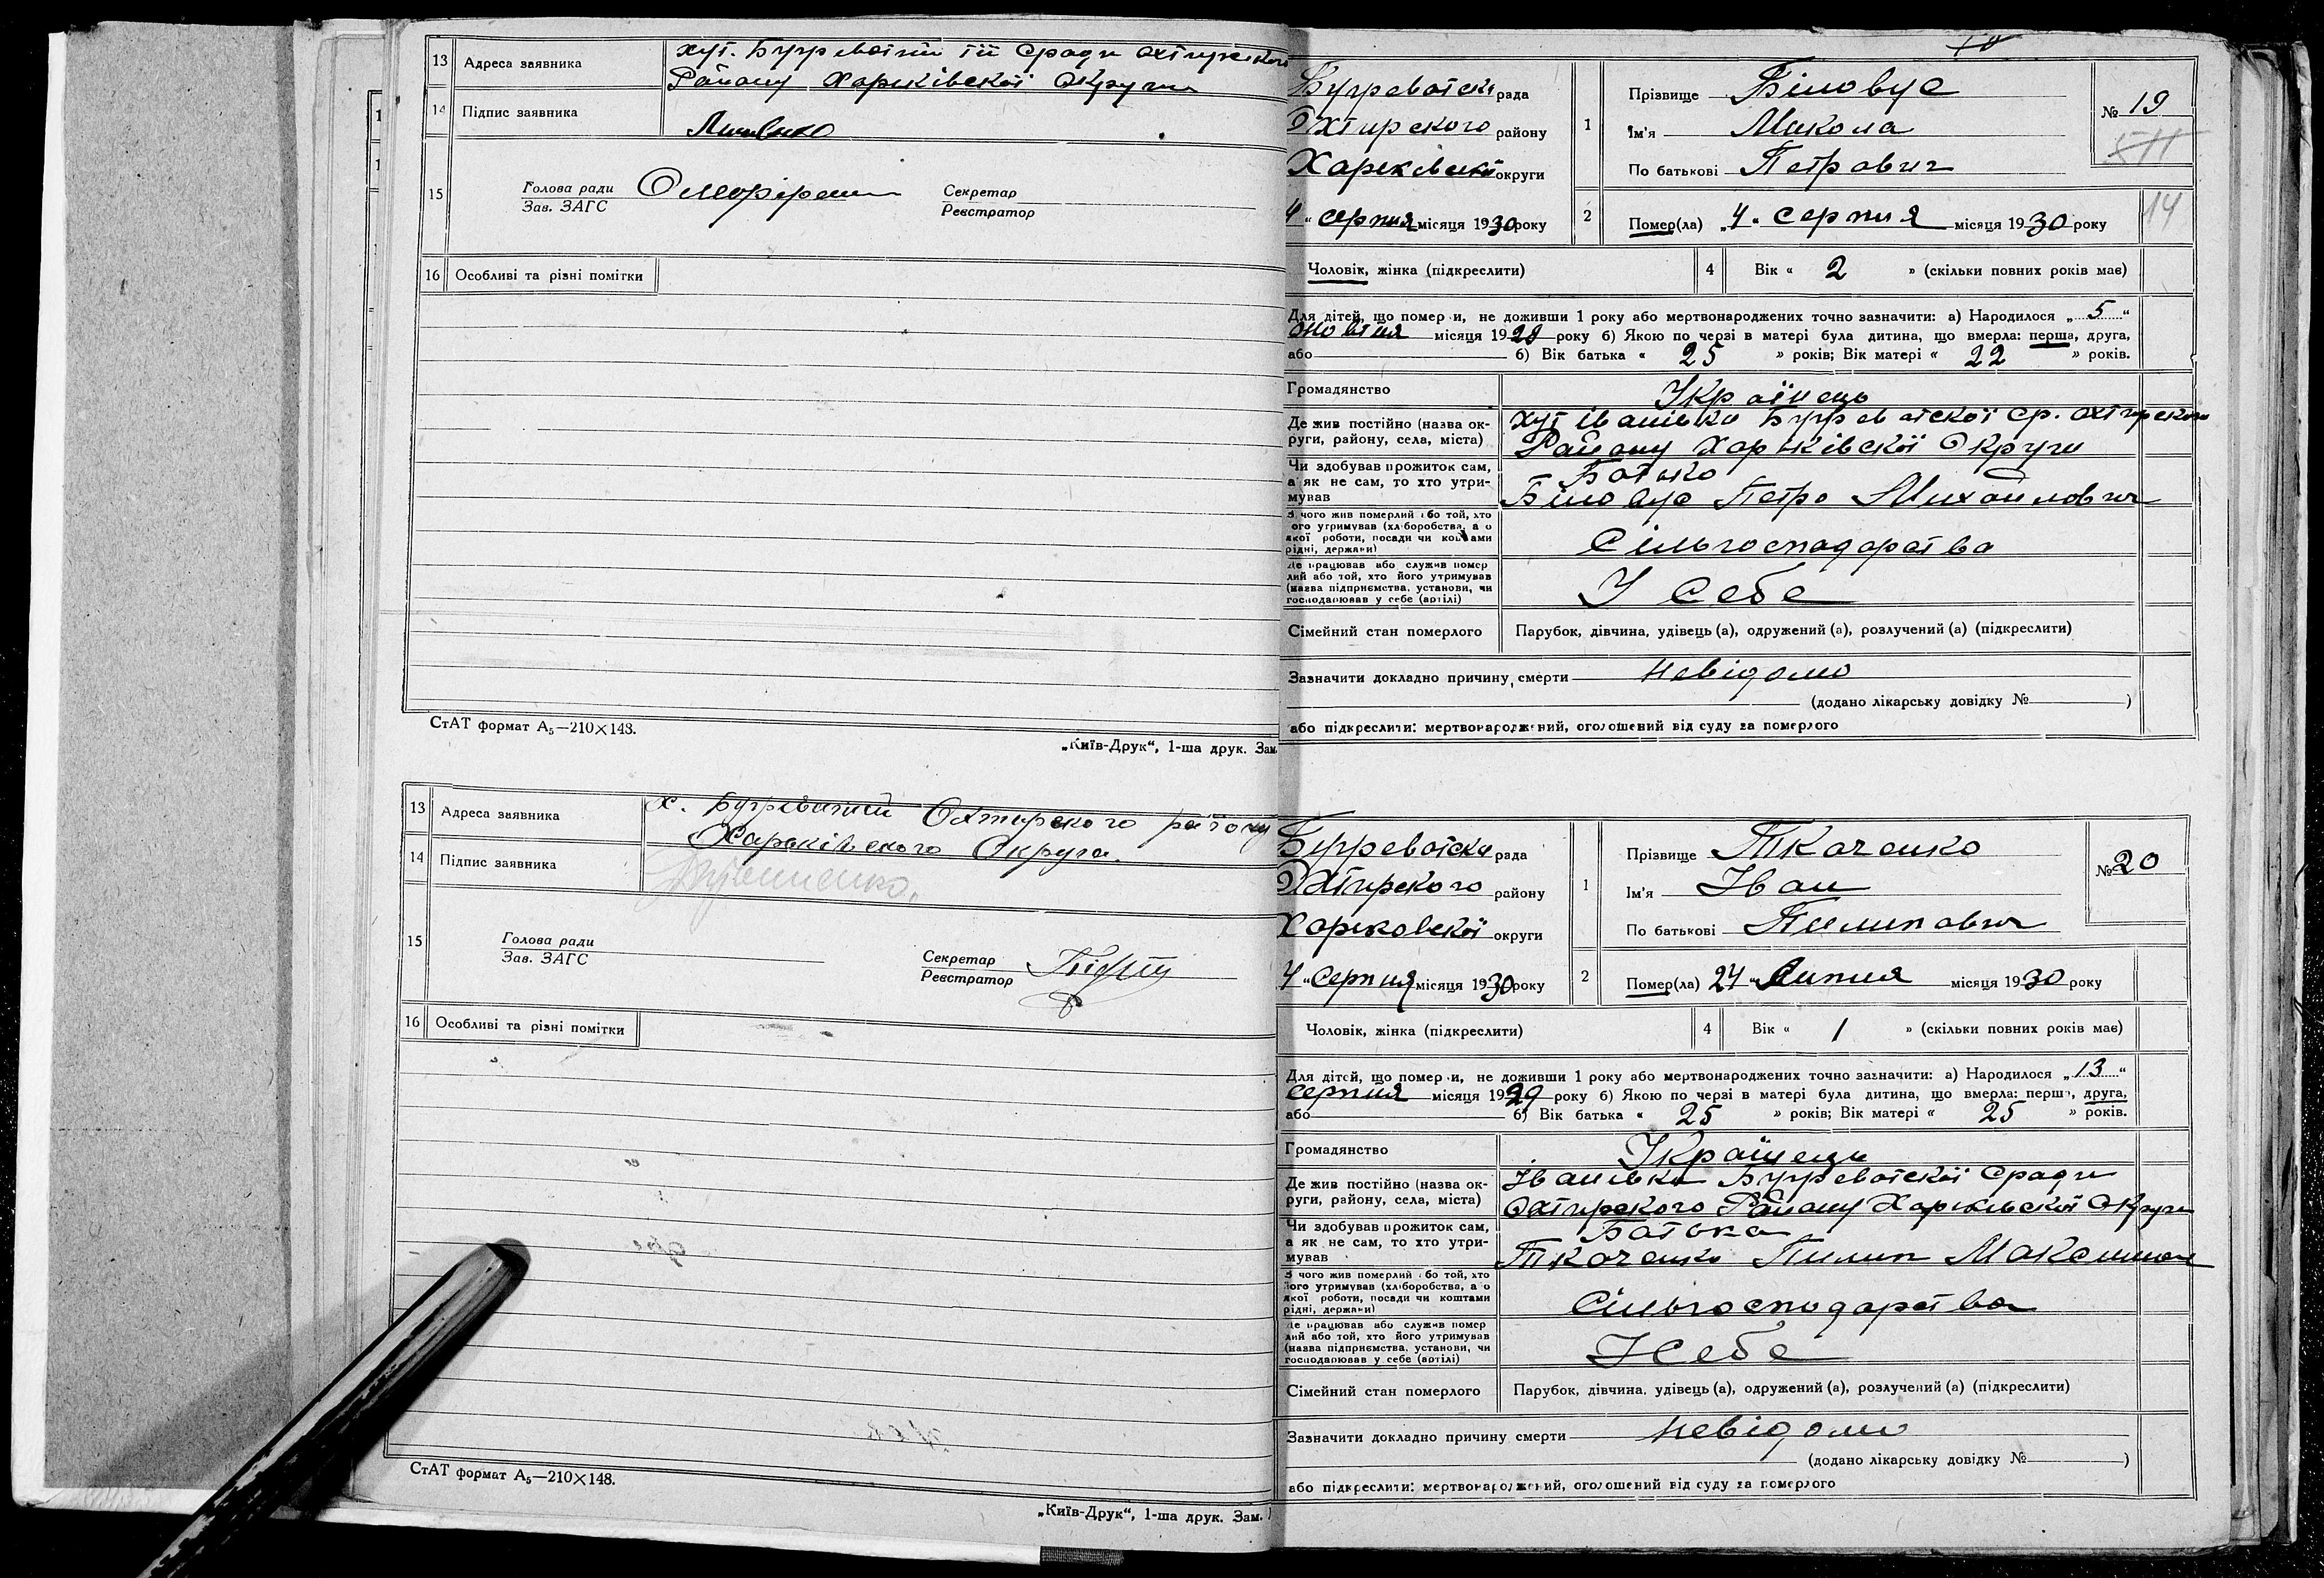 13 Адреса заявника хут. Бугреватий тії Сради Охтирского
Району Харківскої Округи
14 Підпис заявника
15 Голова ради
Зав. ЗАГС
Секретар
Реєстратор
16 Особливі та різні помітки
СтАТ формат А₅—210×148.
„Київ-Друк“, 1-ша друк. Зам.
13 Адреса заявника х. Бугреватий Охтирского району
Харьківского Округа.
14 Підпис заявника
15 Голова ради
Зав. ЗАГС
Секретар
Реєстратор
16 Особливі та різні помітки
СтАТ формат А₅—210×148.
„Київ-Друк“, 1-ша друк. Зам.
Бугреватска рада
Охтирского району
Харківскої округи
4 „ серпня місяця 1930 року
1 Прізвище Біловус
Ім'я Микола
По батькові Петрович
№ 19
XII
2 Помер(ла) „4„ серпня місяця 1930 року
14
Чоловік, жінка (підкреслити) 4 Вік « 2 » (скільки повних років має)
Для дітей, що померли, не доживши 1 року або мертвонароджених точно зазначити: а) Народилося „ 5 “
жовтня місяця 1928 року б) Якою по черзі в матері була дитина, що вмерла: перша, друга,
або б) Вік батька « 25 » років; Вік матері « 22 » років.
Громадянство Українець
Де жив постійно (назва округи, району, села, міста) Хут Іванівка Бугреватскої Ср. Охтирского
Району Харківскої Округи
Чи здобував прожиток сам, а як не сам, то хто утримував Батько
Біловус Петро Михайлович
З чого жив померлий або той, хто його утримував (хліборобства, або якої роботи, посади чи коштами рідні, держави) Сільгосподарства
Де працював або служив померлий або той, хто його утримував (назва підприємства, установи, чи господарював у себе (артілі) У Себе
Сімейний стан померлого Парубок, дівчина, удівець (а), одружений (а), розлучений (а) (підкреслити)
Зазначити докладно причину смерти невідомо
(додано лікарську довідку № )
або підкреслити: мертвонароджений, оголошений від суду за померлого
Бугреватска рада
Охтирского району
Харковскої округи
4 „ Серпня місяця 1930 року
1 Прізвище Ткаченко
Ім'я Іван
По батькові Пилипович
№ 20
2 Помер(ла) 24 „ Липня місяця 1930 року
Чоловік, жінка (підкреслити) 4 Вік « 1 » (скільки повних років має)
Для дітей, що померли, не доживши 1 року або мертвонароджених точно зазначити: а) Народилося „ 13 “
серпня місяця 1929 року б) Якою по черзі в матері була дитина, що вмерла: перша, друга,
або б) Вік батька « 25 » років; Вік матері « 25 » років.
Громадянство Українець
Де жив постійно (назва округи, району, села, міста) Іванівка Бугреватскої Сради
Охтирского Району Харківскої Округи
Чи здобував прожиток сам, а як не сам, то хто утримував Батько
Ткаченко Пилип
З чого жив померлий або той, хто його утримував (хліборобства, або якої роботи, посади чи коштами рідні, держави) Сільгосподарства
Де працював або служив померлий або той, хто його утримував (назва підприємства, установи, чи господарював у себе (артілі) У Себе
Сімейний стан померлого Парубок, дівчина, удівець (а), одружений (а), розлучений (а) (підкреслити)
Зазначити докладно причину смерти невідомо
(додано лікарську довідку № )
або підкреслити: мертвонароджений, оголошений від суду за померлого